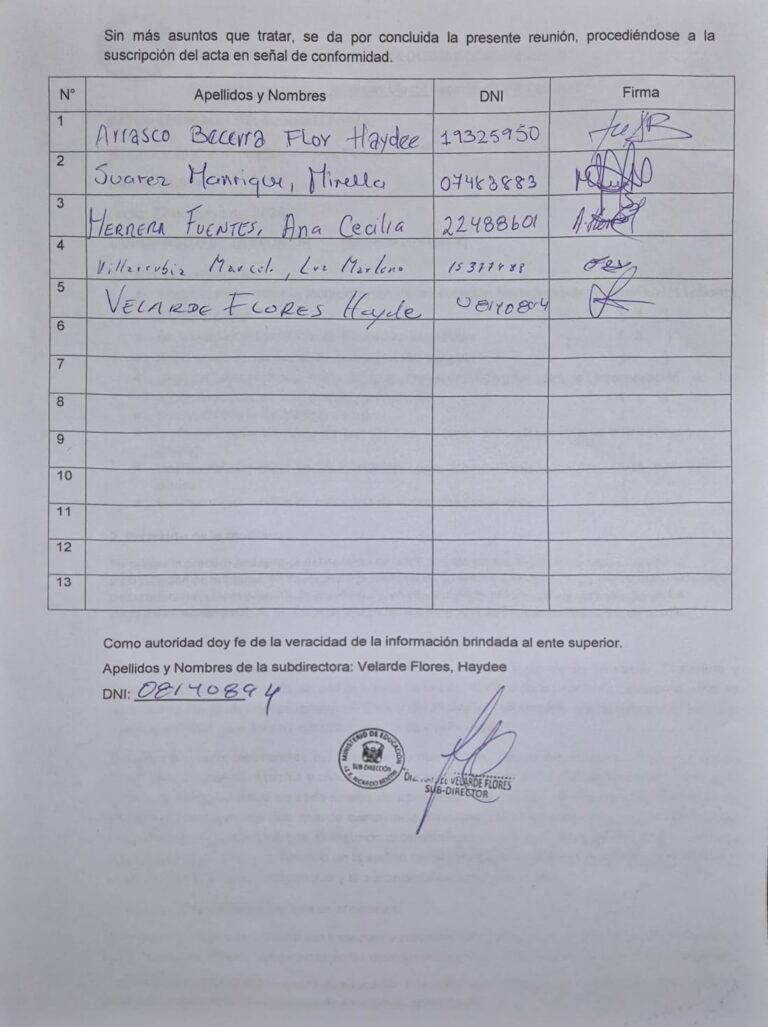 Sin más asuntos que tratar, se da por concluida la presente reunión, procediéndose a la
suscripción del acta en señal de conformidad.
N° Apellidos y Nombres DNI Firma
1 Arrasco Becerra Flor Haydee 19325950
2 Suarez Manrique, Mirella 07483883
3 HERRERA FUENTES, Ana Cecilia 22488601
4 Villarrubia Marcelo, Luz Marlene
5 VELARDE FLORES Hayde 08140894
6
7
8
9
10
11
12
13
Como autoridad doy fe de la veracidad de la información brindada al ente superior.
Apellidos y Nombres de la subdirectora: Velarde Flores, Haydee
DNI: 08140894
MINISTERIO DE EDUCACIÓN
SUB-DIRECCIÓN
VELARDE FLORES
SUB-DIRECTOR